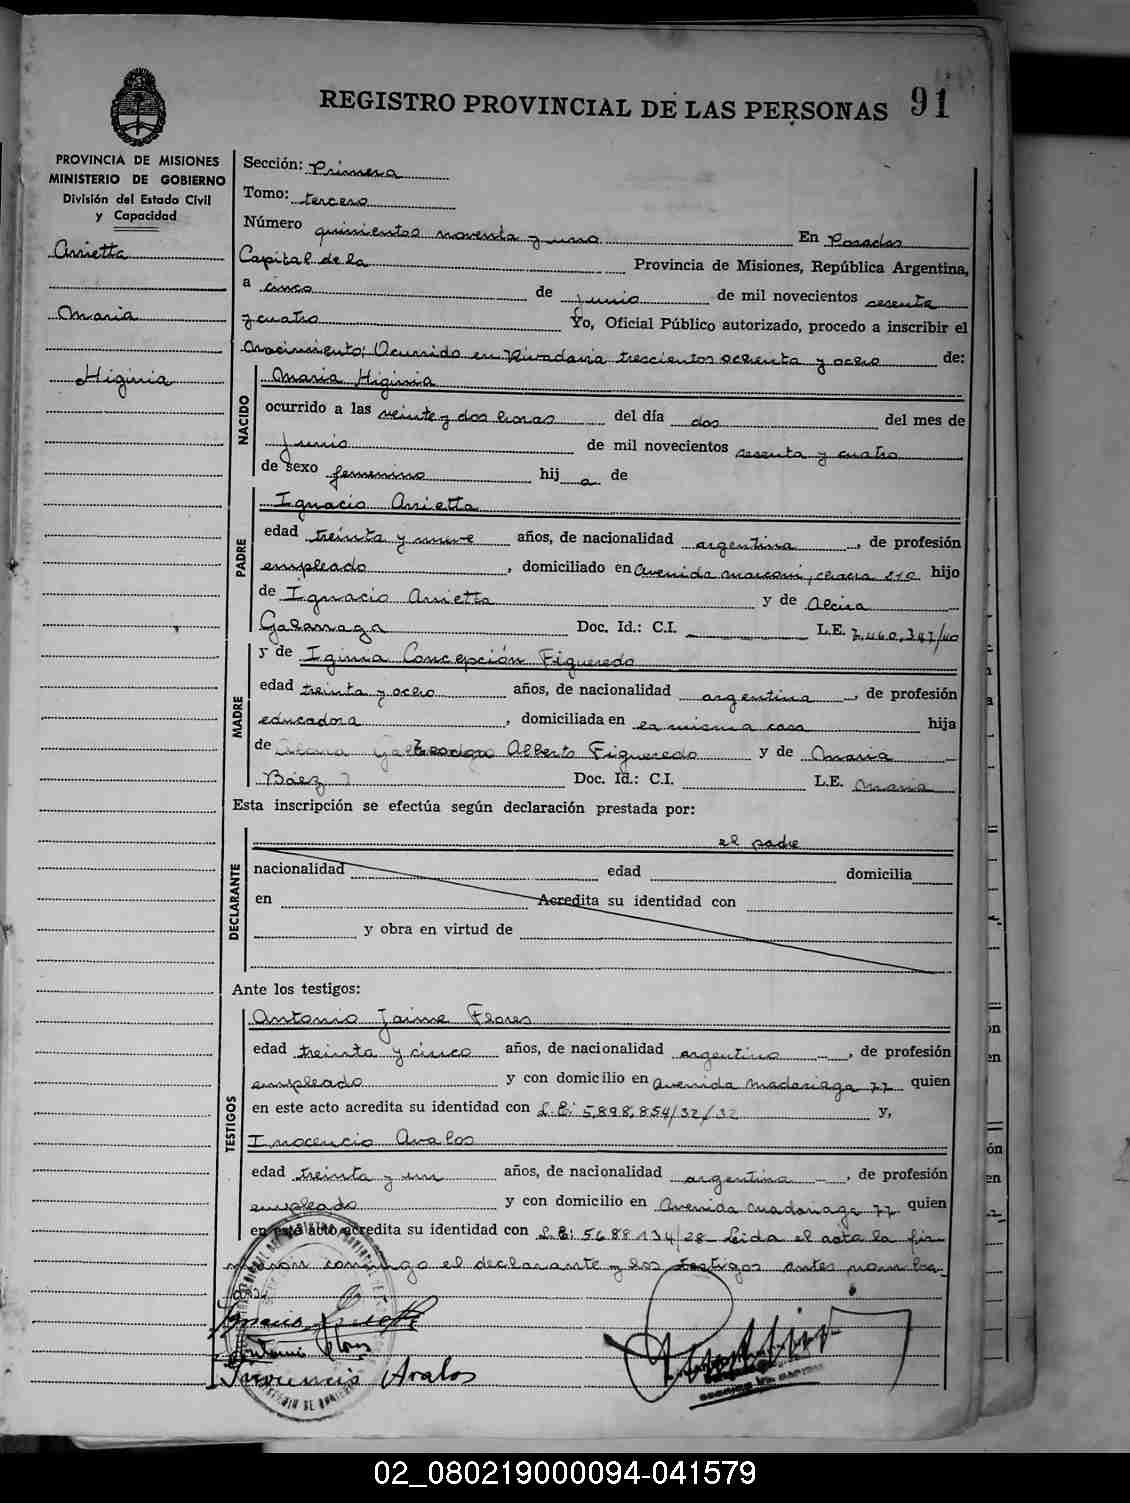 REGISTRO PROVINCIAL DE LAS PERSONAS 91
PROVINCIA DE MISIONES
MINISTERIO DE GOBIERNO
División del Estado Civil
y Capacidad
Arrietta
Maria
Higinia
Sección: Primera
Tomo: tercero
Número quinientos noventa y uno En Posadas
Capital de la Provincia de Misiones, República Argentina,
a cinco de junio de mil novecientos sesenta
y cuatro Yo, Oficial Público autorizado, procedo a inscribir el
Nacimiento; Ocurrido en Rivadavia trescientos ochenta y ocho de:
NACIDO
Maria Higinia
ocurrido a las veinte y dos horas del día dos del mes de
junio de mil novecientos sesenta y cuatro
de sexo femenino hij a de
PADRE
Ignacio Arrietta
edad treinta y nueve años, de nacionalidad argentina, de profesión
empleado, domiciliado en Avenida Marconi, chacra 210 hijo
de Ignacio Arrietta y de Alcira
Galarraga Doc. Id.: C.I. L.E. 7,460,347/40
MADRE
y de Iginia Concepción Figueredo
edad treinta y ocho años, de nacionalidad argentina, de profesión
educadora, domiciliada en la misma casa hija
de Alberto Figueredo y de Maria
Báez Doc. Id.: C.I. L.E. Maria
Esta inscripción se efectúa según declaración prestada por:
DECLARANTE
el padre
nacionalidad edad domicilia
en Acredita su identidad con
y obra en virtud de
Ante los testigos:
TESTIGOS
Antonio Jaime Flores
edad treinta y cinco años, de nacionalidad argentino, de profesión
empleado y con domicilio en Avenida Madariaga 77 quien
en este acto acredita su identidad con L.E: 5,898,854/32/32 y,
Inocencio Avalos
edad treinta y un años, de nacionalidad argentina, de profesión
empleado y con domicilio en Avenida Madariaga 77 quien
en este acto acredita su identidad con L.E: 5688134/28 Leida el acta la fir-
maron conmigo el declarante y los testigos antes nombra-
dos.
Ignacio Arrietta
Antonio Flores
Inocencio Avalos
02_080219000094-041579